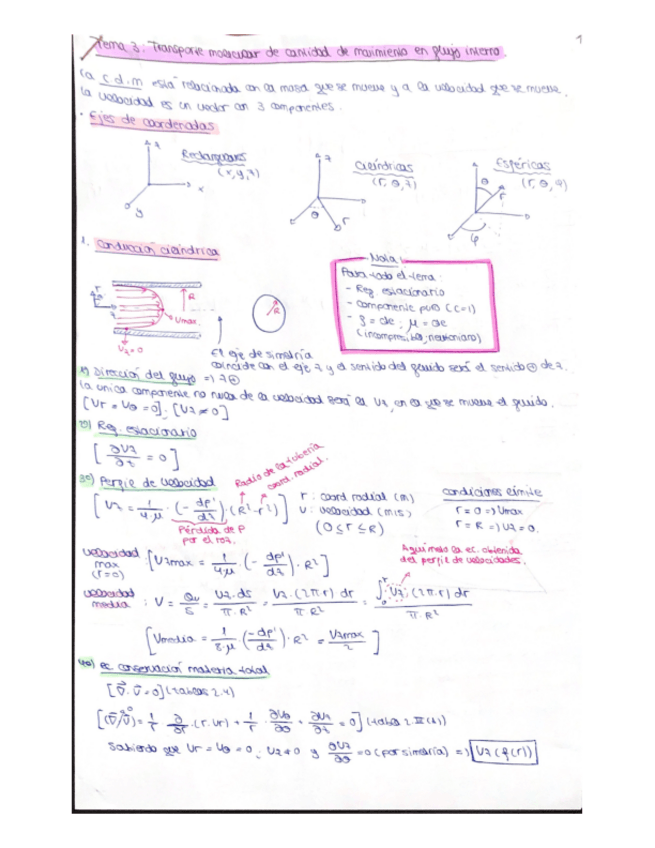 1
Tema 3. Transporte molecular de cantidad de movimiento en flujo interno
La c.d.m está relacionada con la masa que se mueve y a la velocidad que se mueve.
La velocidad es un vector con 3 componentes.
· Ejes de coordenadas
Rectangulares
(x,y,z)
Cilíndricas
(r, θ, z)
Esféricas
(r, θ, φ)
z
x
y
z
θ
r
θ
r
φ
1. Conducción cilíndrica
Nota!
Para todo el tema:
- Reg estacionario
- Componente puro (c=1)
- ρ = cte ; μ = cte
(incompresible, newtoniano)
r
z
R
Vmax.
Vz=0
R
El eje de simetría
coincide con el eje z y el sentido del fluido será el sentido ⊕ de z.
1º) Dirección del flujo => z ⊕
La única componente no nula de la velocidad será la Vz, en la que se mueve el fluido.
[Vr = Vθ = 0] ; [Vz ≠ 0]
2º) Reg. estacionario
[∂Vz/∂t = 0]
3º) Perfil de velocidad
Radio de la tubería
coord. radial.
[Vz = 1/4·μ · (- dp'/dz) · (R²-r²)]
Pérdida de P
por el roz.
r : coord radial (m)
v : velocidad (m/s)
(0 ≤ r ≤ R)
condiciones límite
r = 0 => Vmax
r = R => Vz = 0.
velocidad max (r=0) : [Vzmax = 1/4·μ · (- dp'/dz) · R²]
Aquí meto la ec. obtenida
del perfil de velocidades.
velocidad media : V = Qv/S = Vz·ds/π·R² = Vz·(2πr) dr/π·R² = ∫₀ʳ Vz·(2πr) dr/π·R²
[Vmedia = 1/8·μ · (-dp'/dz) · R² = Vzmax/2]
4º) ec. conservación materia total
[∇·v = 0] (tablas 2.4)
[(∇·v) = 1/r ∂/∂r · (r·Vr) + 1/r · ∂Vθ/∂θ + ∂Vz/∂z = 0] (tabla 2.II(B))
Sabiendo que Vr = Vθ = 0 ; Vz ≠ 0 y ∂Vz/∂θ = 0 (por simetría) => Vz (f(r))